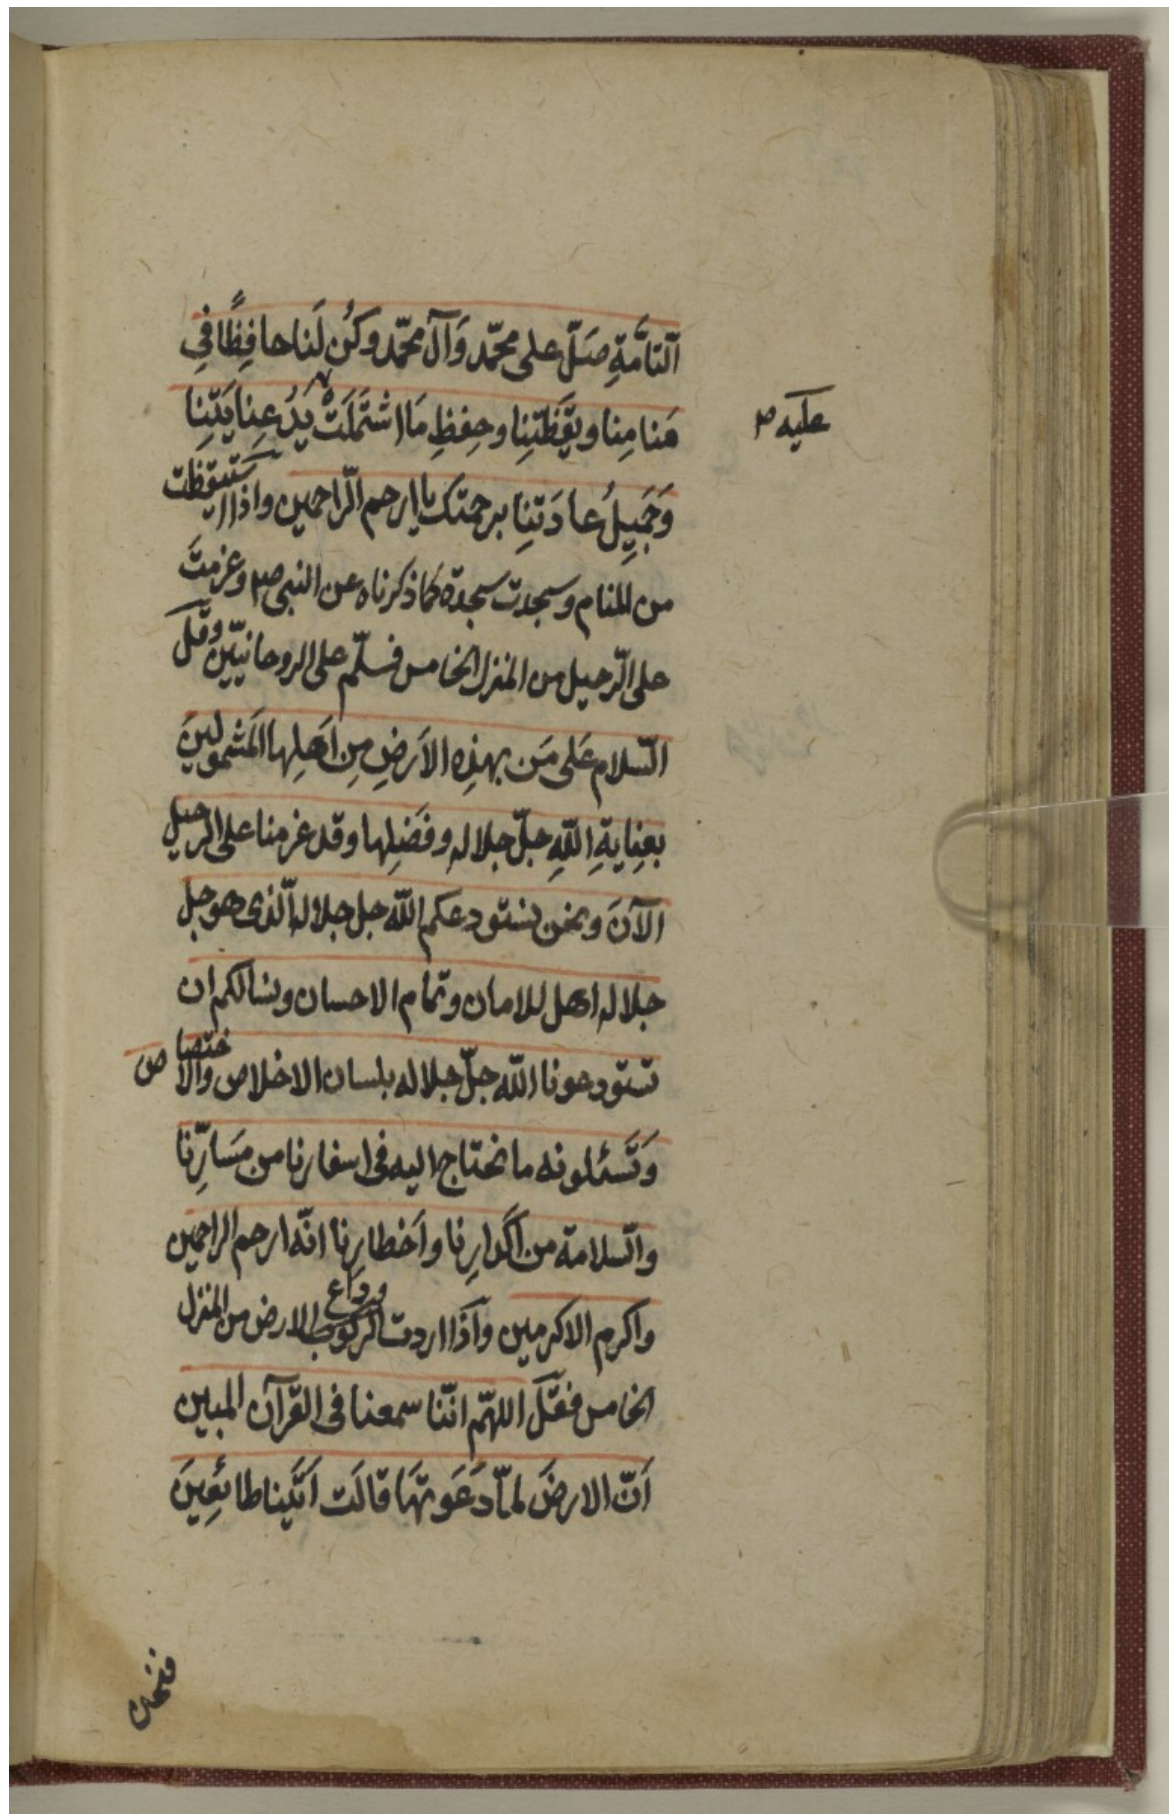 التّامَّةِ صَلّ على محمّد وَآل محمّد وَكُن لَنا حافِظًا في
مَنامِنا ويَقَظَتِنا وحِفظِ مَا اشتَمَلَتْ يَدُ عِنايَتِنا
عليه ص
وَجَمِيلُ عادَتِنا برحمتك يا ارحم الرّاحمين واذا استيقظت
من المنام وسجدت سجدة كما ذكرناه عن النبى ص وعزمتَ
على الرّحيل من المنزل الخامس فسلّم على الروحانيّين وقل
السّلام عَلى مَن بهذِه الاَرضِ مِن اَهلِها المَشمولينَ
بعِنايةِ اللّهِ جلّ جلاله وفَضلِها وقد عزمنا على الرحيل
الآنَ ونحن نستودعكم اللّه جل جلاله الّذى هو جل
جلاله اهل للامان وتمام الاحسان ونسالكم ان
تستودعونا اللّه جلّ جلاله بلسان الاخلاص والاختصاص
وَتَسئلونه ما نحتاج اليه فى اسفارنا من مَسارِّنا
والسّلامة من اَكدارِنا واَخطارِنا انّه ارحم الراحمين
واكرم الاكرمين وَاذَا اردت الركوب وداع الارض من المنزل
الخامس فقل اللهمّ انّنا سمعنا فى القرآن المبين
اَنّ الارضَ لمّا دَعَوتَهَا قالَت اَتَينا طائِعِينَ
فنحن